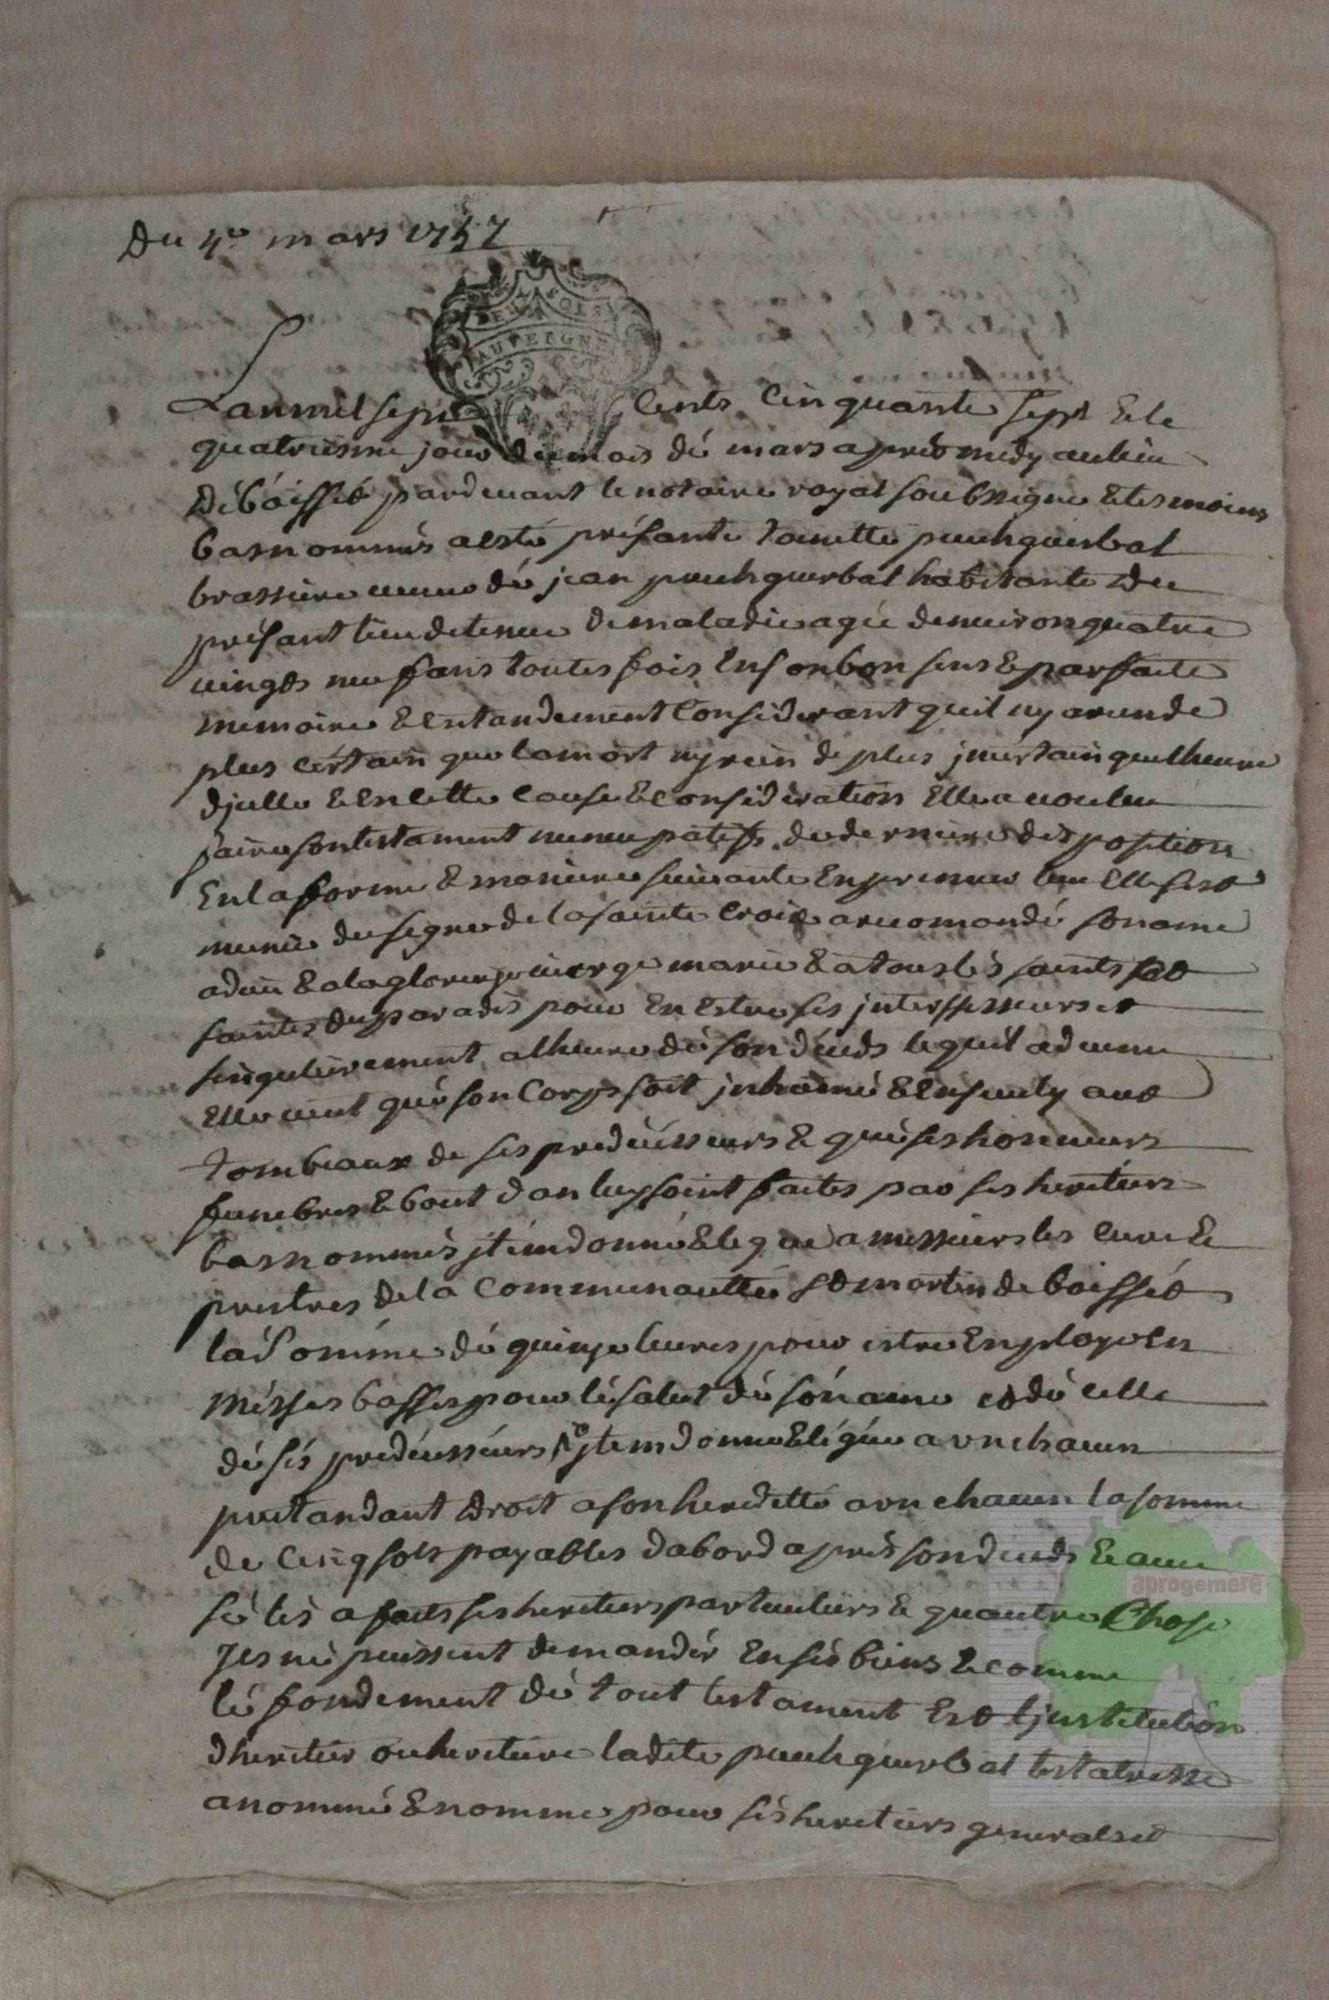 Du 4e mars 1757
DEUX SOLS
AUVERGNE
Lanmil sept Cents Cinquante sept & le
quatriesme jour du mois dé mars aprés midy au lieu
Déboissét pardeuant le notaire royal soubssigne & tesmoins
bas nommés a esté présante Toinette puechguerbal
brassiere veuue dé jean puechguerbal habitante du
présant lieu detenue de maladie agée denuiron quatre
vingts neuf ans toutes fois En son bon sens & parfaite
memoire & entandement Considerant quil ny a rien de
plus cértain que la mort ny rien de plus jnsertain que lheure
djcelle & En cette Cause & considération Elle a voulleu
faire son testament nuncupatifs de derniere disposition
En la forme & maniere suiuante En premier lieu Elle sest
munie du signe de la sainte Croix a recomandé son ame
a dieu & a la glorieuse vierge marie & a tous lés saints & ste
saintes du paradis pour En estre ses jntersesseurs et
singulierement a lheure dé son décéds lequel aduenu
Elle veut qué son Corps soit jnhumé & Enseuely aux
tombeaux de ses predecesseurs & qué ses honneurs
funebres & bout dan luy soint faites par ses heritiers
bas nommés jtem donne & legue a messieurs les curé &
prestres de la Communautté St martin de boissét
la somme dé quinze liures pour estre Employés En
mésses basses pour lé salut dé son ame et dé celle
dé sés predécesséurs jtem donne & légue a vn chacun
prétandant droit a son heredité a vn chacun la somme
de Cinq sols payables dabord aprés son décéds & auec
sé les a faits ses heritiers particuliers & quautre Chose
Jes né puissent demandér En sés biens & comme
lé fondement dé tout testament Est l'justitution
dheritier ou heritiere ladite puechguerbal testatresse
a nommé & nomme pour sés heritiers generals et
aprogemere